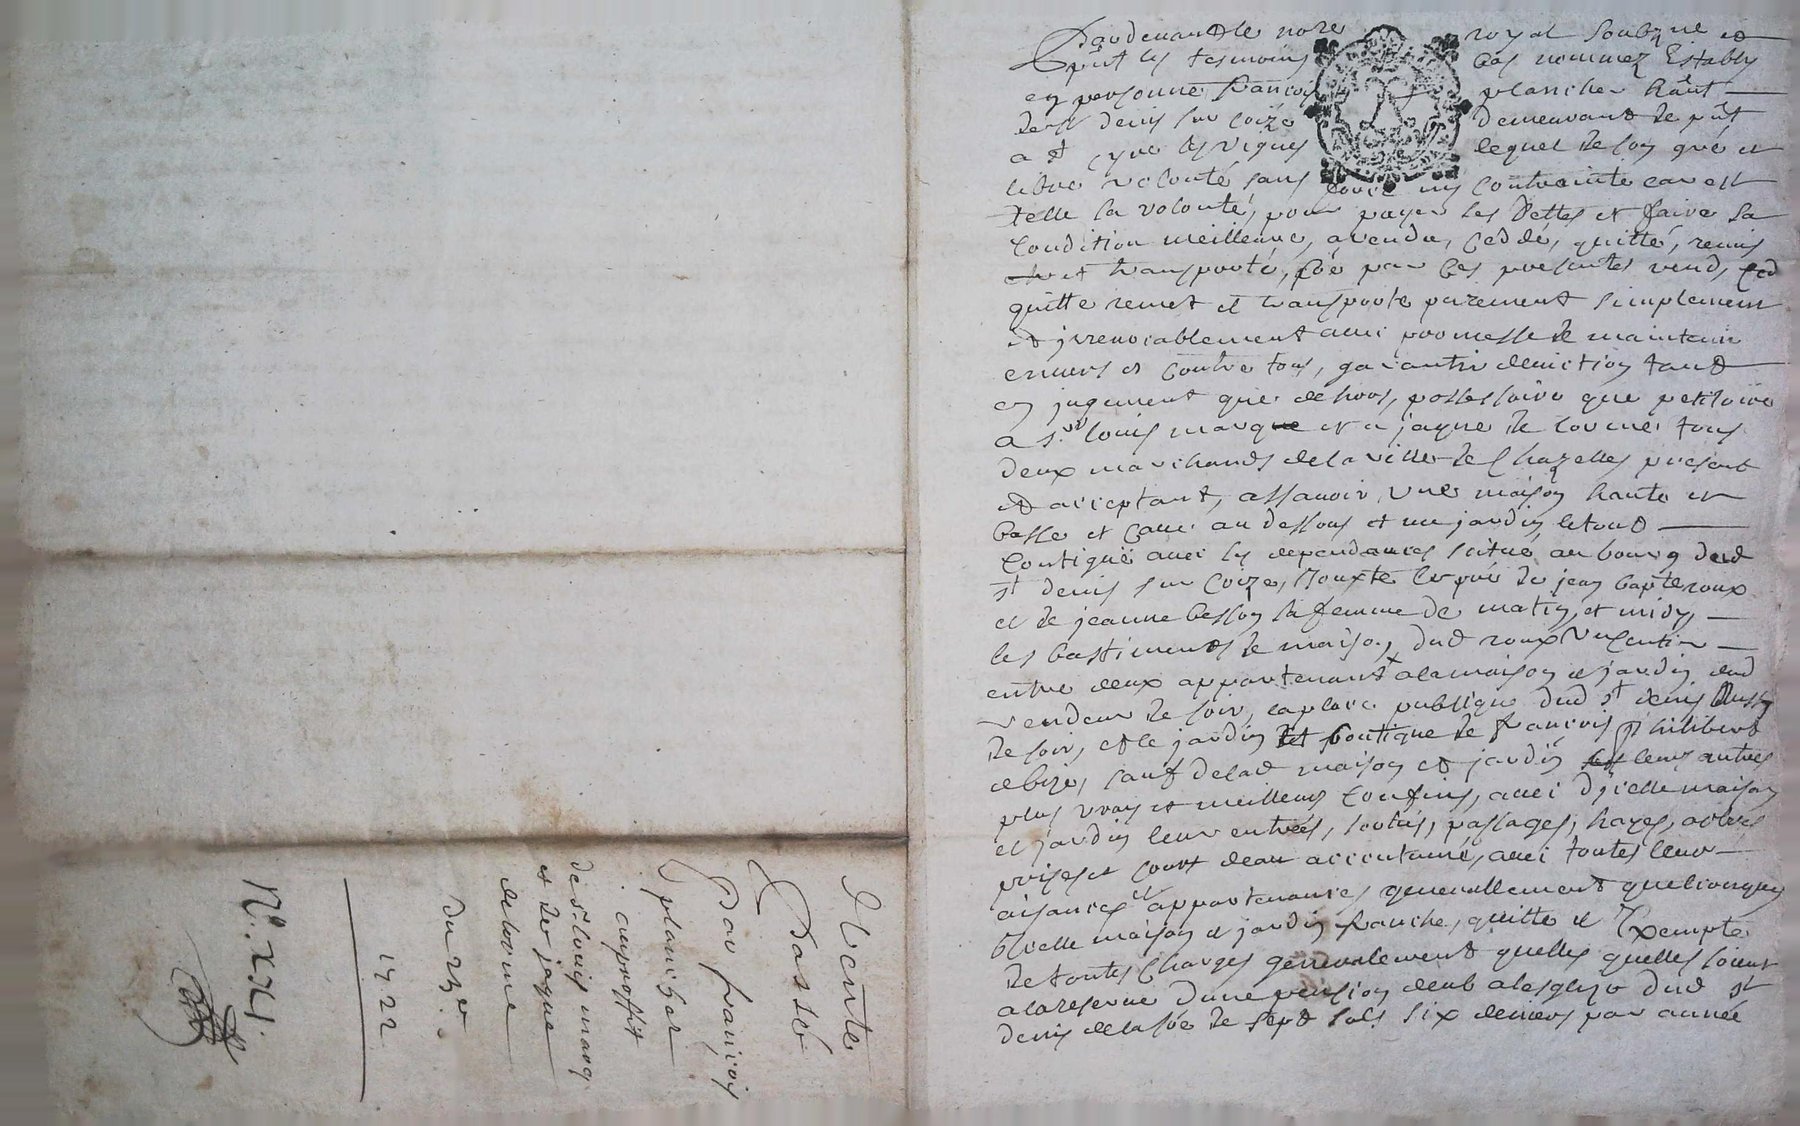 Vente
Passé
par françois
plancher
au proffit
de sr. louis marq
et de jaque
delorme
du 23e
1722
N°. XXI.
Pardevant le nore royal soubzne et
pnt les tesmoins bas nommez Estably
en personne françois plancher hant
de st denis sur coize demeurant de pnt
a st cyre les vignes lequel de son gré et
libre volonté sans contrainte car est
telle sa volonté, pour payer ses dettes et faire sa
condition meilleure, a vendu, ceddé, quitté, remis
et transporté, coe par ces presentes vend, ced
quitte remet et transporte purement simplement
et jrrevocablement avec promesse de maintenir
envers et contre tous, garantir deviction tant
en jugement que dehors, possessoire que petitoire
a sr louis marque et a jaque de lorme tous
deux marchands de la ville de Chazelles present
et acceptant, assavoir, une maison haute et
basse et cave au dessous et un jardin le tout
contigüe avec ses dependances scitué au bourg dud
st denis sur coize, Jouxte le pré de jean bapte roux
et de jeanne besson sa femme de matin, et midy,
les bastiments de maison dud roux
entre deux appartenant a la maison et jardin dud
vendeur de soir, la place publique dud st denis aussy
de soir, et le jardin et boutique de françois philibert
de bize, sauf de lad maison et jardin leurs autres
plus vrays et meilleurs confins, avec d'jcelle maison
et jardin leur entrées, sorties, passages, hayes, arbres
prises et court deau accoutumé, avec toutes leur
aisances et appartenances generallement quelconques
jcelle maison et jardin franche, quitte et Exempte
de toutes charges generalement quelles quelles soient
a la reserve dune pension deub a lesglize dud st
denis de la soe de sept sols six deniers par année